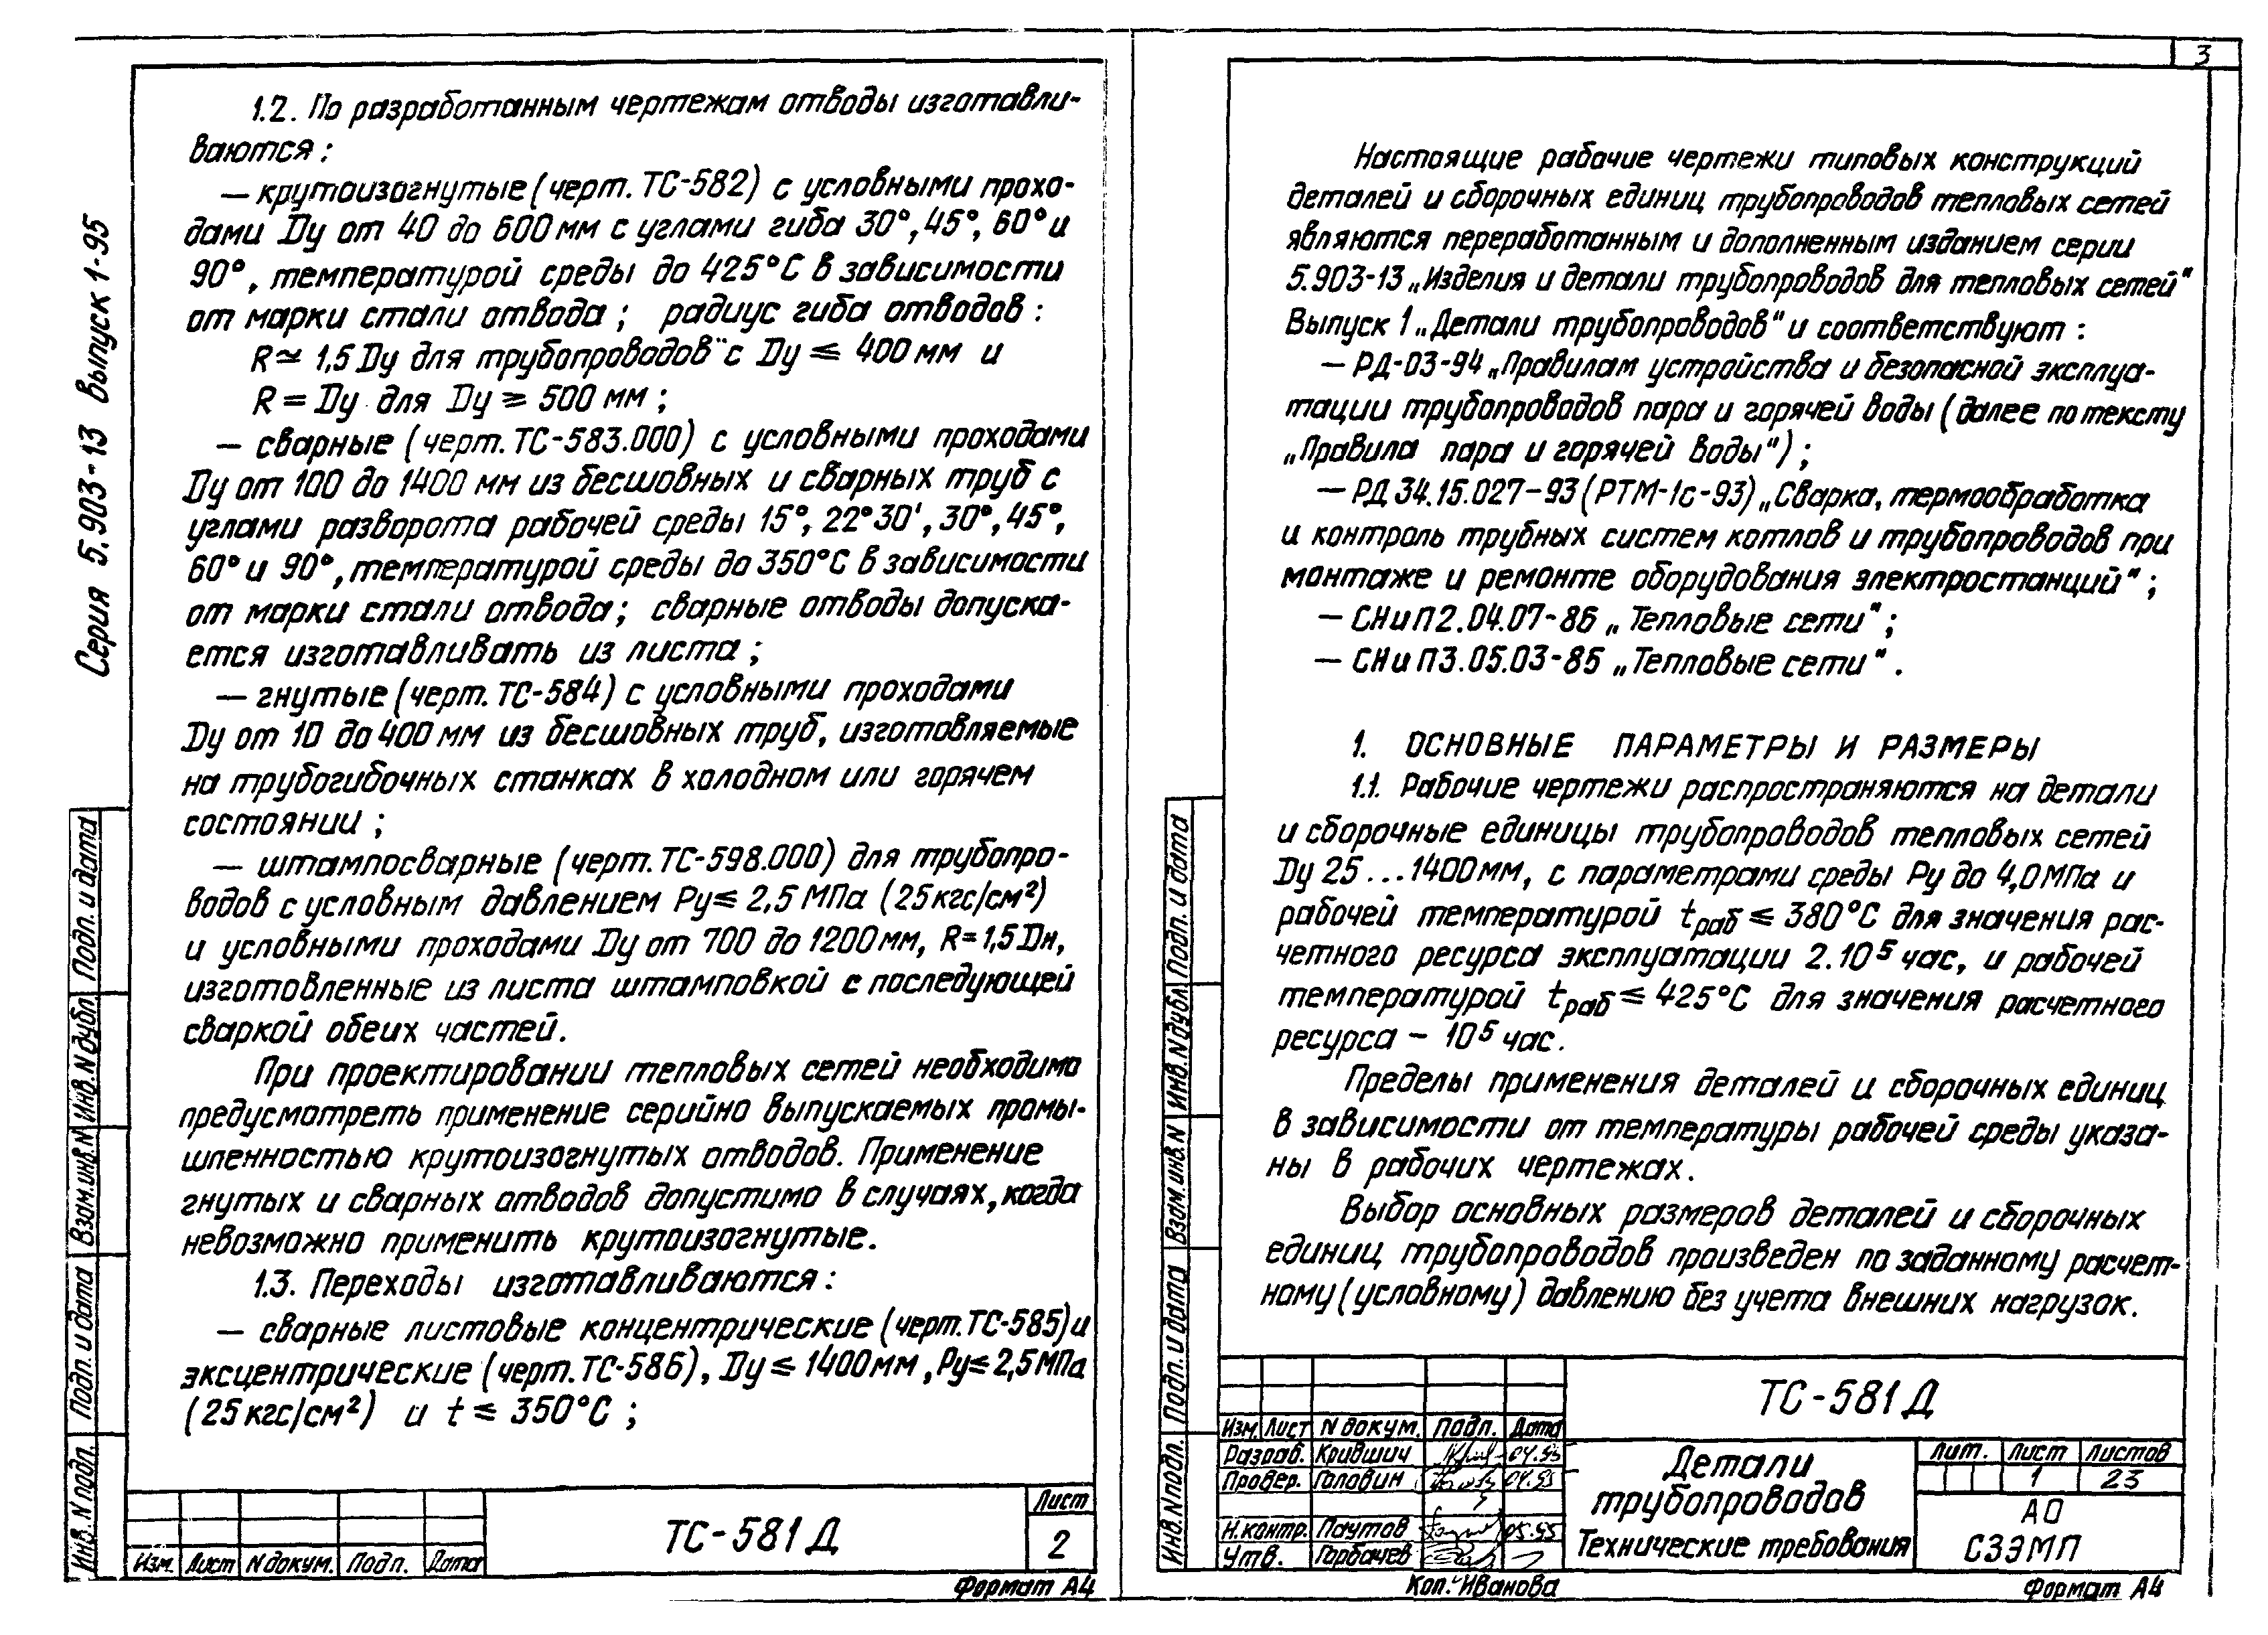 Серия 5.903-13 Выпуск 1-95
1.2. По разработанным чертежам отводы изготавли-
ваются:
— крутоизогнутые (черт. ТС-582) с условными прохо-
дами Ду от 40 до 600 мм с углами гиба 30°, 45°, 60° и
90°, температурой среды до 425°С в зависимости
от марки стали отвода; радиус гиба отводов:
R ≃ 1,5 Ду для трубопроводов с Ду ≤ 400 мм и
R = Ду для Ду ≥ 500 мм;
— сварные (черт. ТС-583.000) с условными проходами
Ду от 100 до 1400 мм из бесшовных и сварных труб с
углами разворота рабочей среды 15°, 22°30', 30°, 45°,
60° и 90°, температурой среды до 350°С в зависимости
от марки стали отвода; сварные отводы допуска-
ется изготавливать из листа;
— гнутые (черт. ТС-584) с условными проходами
Ду от 10 до 400 мм из бесшовных труб, изготовляемые
на трубогибочных станках в холодном или горячем
состоянии;
— штампосварные (черт. ТС-598.000) для трубопро-
водов с условным давлением Ру ≤ 2,5 МПа (25 кгс/см²)
и условными проходами Ду от 700 до 1200 мм, R = 1,5 Дн,
изготовленные из листа штамповкой с последующей
сваркой обеих частей.
При проектировании тепловых сетей необходимо
предусмотреть применение серийно выпускаемых промы-
шленностью крутоизогнутых отводов. Применение
гнутых и сварных отводов допустимо в случаях, когда
невозможно применить крутоизогнутые.
1.3. Переходы изготавливаются:
— сварные листовые концентрические (черт. ТС-585) и
эксцентрические (черт. ТС-586), Ду ≤ 1400 мм, Ру ≤ 2,5 МПа
(25 кгс/см²) и t ≤ 350°С;
Инв. N подл. Подп. и дата Взам. инв. N Инв. N дубл. Подп. и дата
Изм. Лист N докум. Подп. Дата
ТС-581 Д
Лист
2
Формат А4
3
Настоящие рабочие чертежи типовых конструкций
деталей и сборочных единиц трубопроводов тепловых сетей
являются переработанным и дополненным изданием серии
5.903-13 „Изделия и детали трубопроводов для тепловых сетей"
Выпуск 1 „Детали трубопроводов" и соответствуют:
— РД-03-94 „Правилам устройства и безопасной эксплуа-
тации трубопроводов пара и горячей воды (далее по тексту
„Правила пара и горячей воды");
— РД 34.15.027-93 (РТМ-1с-93) „Сварка, термообработка
и контроль трубных систем котлов и трубопроводов при
монтаже и ремонте оборудования электростанций";
— СНиП 2.04.07-86 „Тепловые сети";
— СНиП 3.05.03-85 „Тепловые сети".
1. ОСНОВНЫЕ ПАРАМЕТРЫ И РАЗМЕРЫ
1.1. Рабочие чертежи распространяются на детали
и сборочные единицы трубопроводов тепловых сетей
Ду 25 ... 1400 мм, с параметрами среды Ру до 4,0 МПа и
рабочей температурой tраб ≤ 380°С для значения рас-
четного ресурса эксплуатации 2.10⁵ час, и рабочей
температурой tраб ≤ 425°С для значения расчетного
ресурса – 10⁵ час.
Пределы применения деталей и сборочных единиц
в зависимости от температуры рабочей среды указа-
ны в рабочих чертежах.
Выбор основных размеров деталей и сборочных
единиц трубопроводов произведен по заданному расчет-
ному (условному) давлению без учета внешних нагрузок.
Инв. N подл. Подп. и дата Взам. инв. N Инв. N дубл. Подп. и дата
ТС-581 Д
Изм. Лист N докум. Подп. Дата
Разраб. Крившич 04.95
Провер. Головин 04.95
Н.контр. Паутов 05.95
Утв. Горбачев
Детали
трубопроводов
Технические требования
Лит. Лист Листов
1 23
АО
СЗЭМП
Коп. Иванова
Формат А4